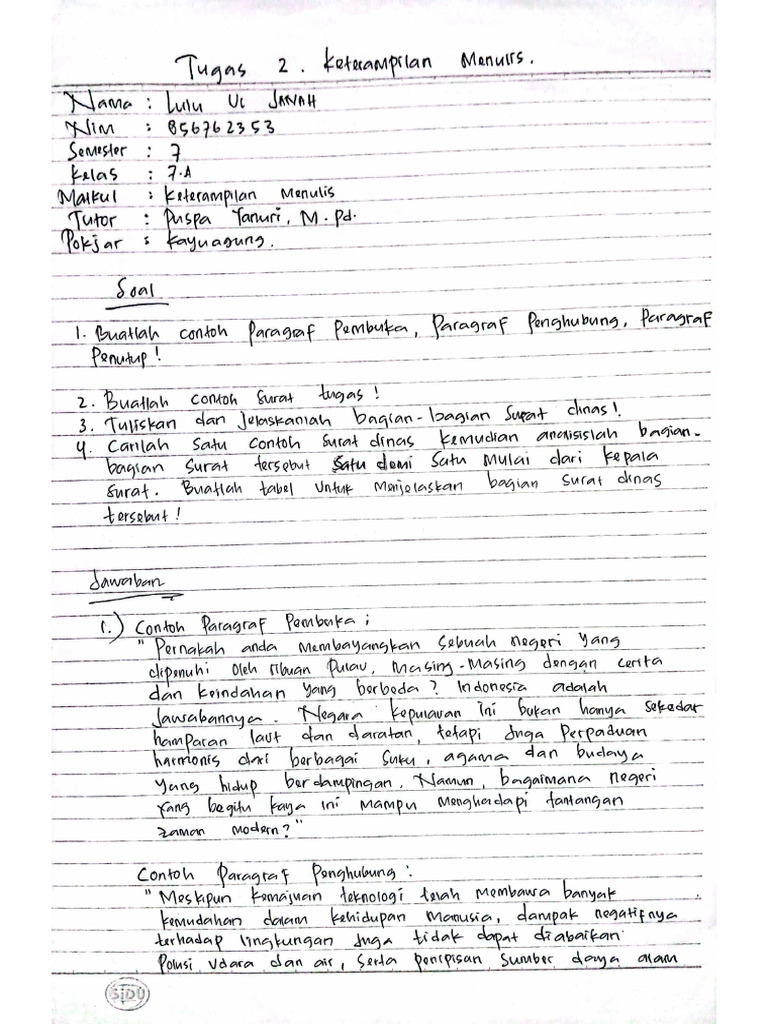 Tugas 2. Keterampilan Menulis.
Nama : Lulu Ul JANAH
Nim : 856762353
Semester : 7
Kelas : 7.A
Matkul : Keterampilan Menulis
Tutor : Puspa Tanuri, M.Pd.
Pokjar : Kayuagung.
Soal
1. Buatlah contoh Paragraf Pembuka, Paragraf Penghubung, Paragraf
Penutup!
2. Buatlah contoh surat tugas!
3. Tuliskan dan Jelaskanlah bagian-bagian Surat dinas!
4. Carilah Satu Contoh Surat dinas kemudian analisislah bagian-
bagian Surat tersebut Satu demi Satu Mulai dari kepala
Surat. Buatlah tabel Untuk Menjelaskan bagian Surat dinas
tersebut!
Jawaban
1.) Contoh Paragraf Pembuka ;
"Pernakah anda Membayangkan Sebuah negeri Yang
dipenuhi Oleh ribuan Pulau, Masing-Masing dengan cerita
dan Keindahan Yang berbeda? Indonesia adalah
Jawabannya. Negara kepulauan Ini bukan hanya sekedar
hamparan laut dan daratan, tetapi Juga Perpaduan
harmonis dari berbagai Suku, agama dan budaya
Yang hidup berdampingan. Namun, bagaimana negeri
Yang begitu kaya Ini Mampu Menghadapi tantangan
zaman modern?"
Contoh Paragraf Penghubung :
"Meskipun Kemajuan teknologi telah Membawa banyak
kemudahan dalam Kehidupan Manusia, dampak negatifnya
terhadap lingkungan Juga tidak dapat diabaikan.
Polusi Udara dan air, Serta penipisan Sumber daya alam
SIDU